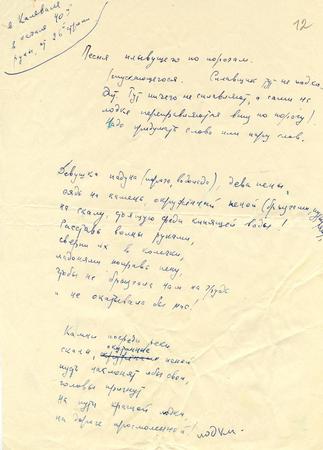 в Калевале
в начале 40й
руны, из 26 строк
12
Песня плывущего по порогам.
Спускающегося. Сплавщик тут не годи.
Эх! Тут ничего не сплавляют, а сами на
лодке переправляются вниз по порогу!
Надо придумать слово или пару слов.
Девушка падуна (порога, водопада), дева пены,
сядь на камень, окружённый пеной
на скалу, стоящую среди кипящей воды!
Расставь волны руками,
сверни их в колечки,
ладонями поправь пену,
чтобы не брызгала нам на грудь
и не окатывала бы нас!
Камни посреди реки
скалы, окутанные пеной
пусть наклонят лбы свои,
головы пригнут
на пути красной лодки
на дороге просмоленной!
лодки.